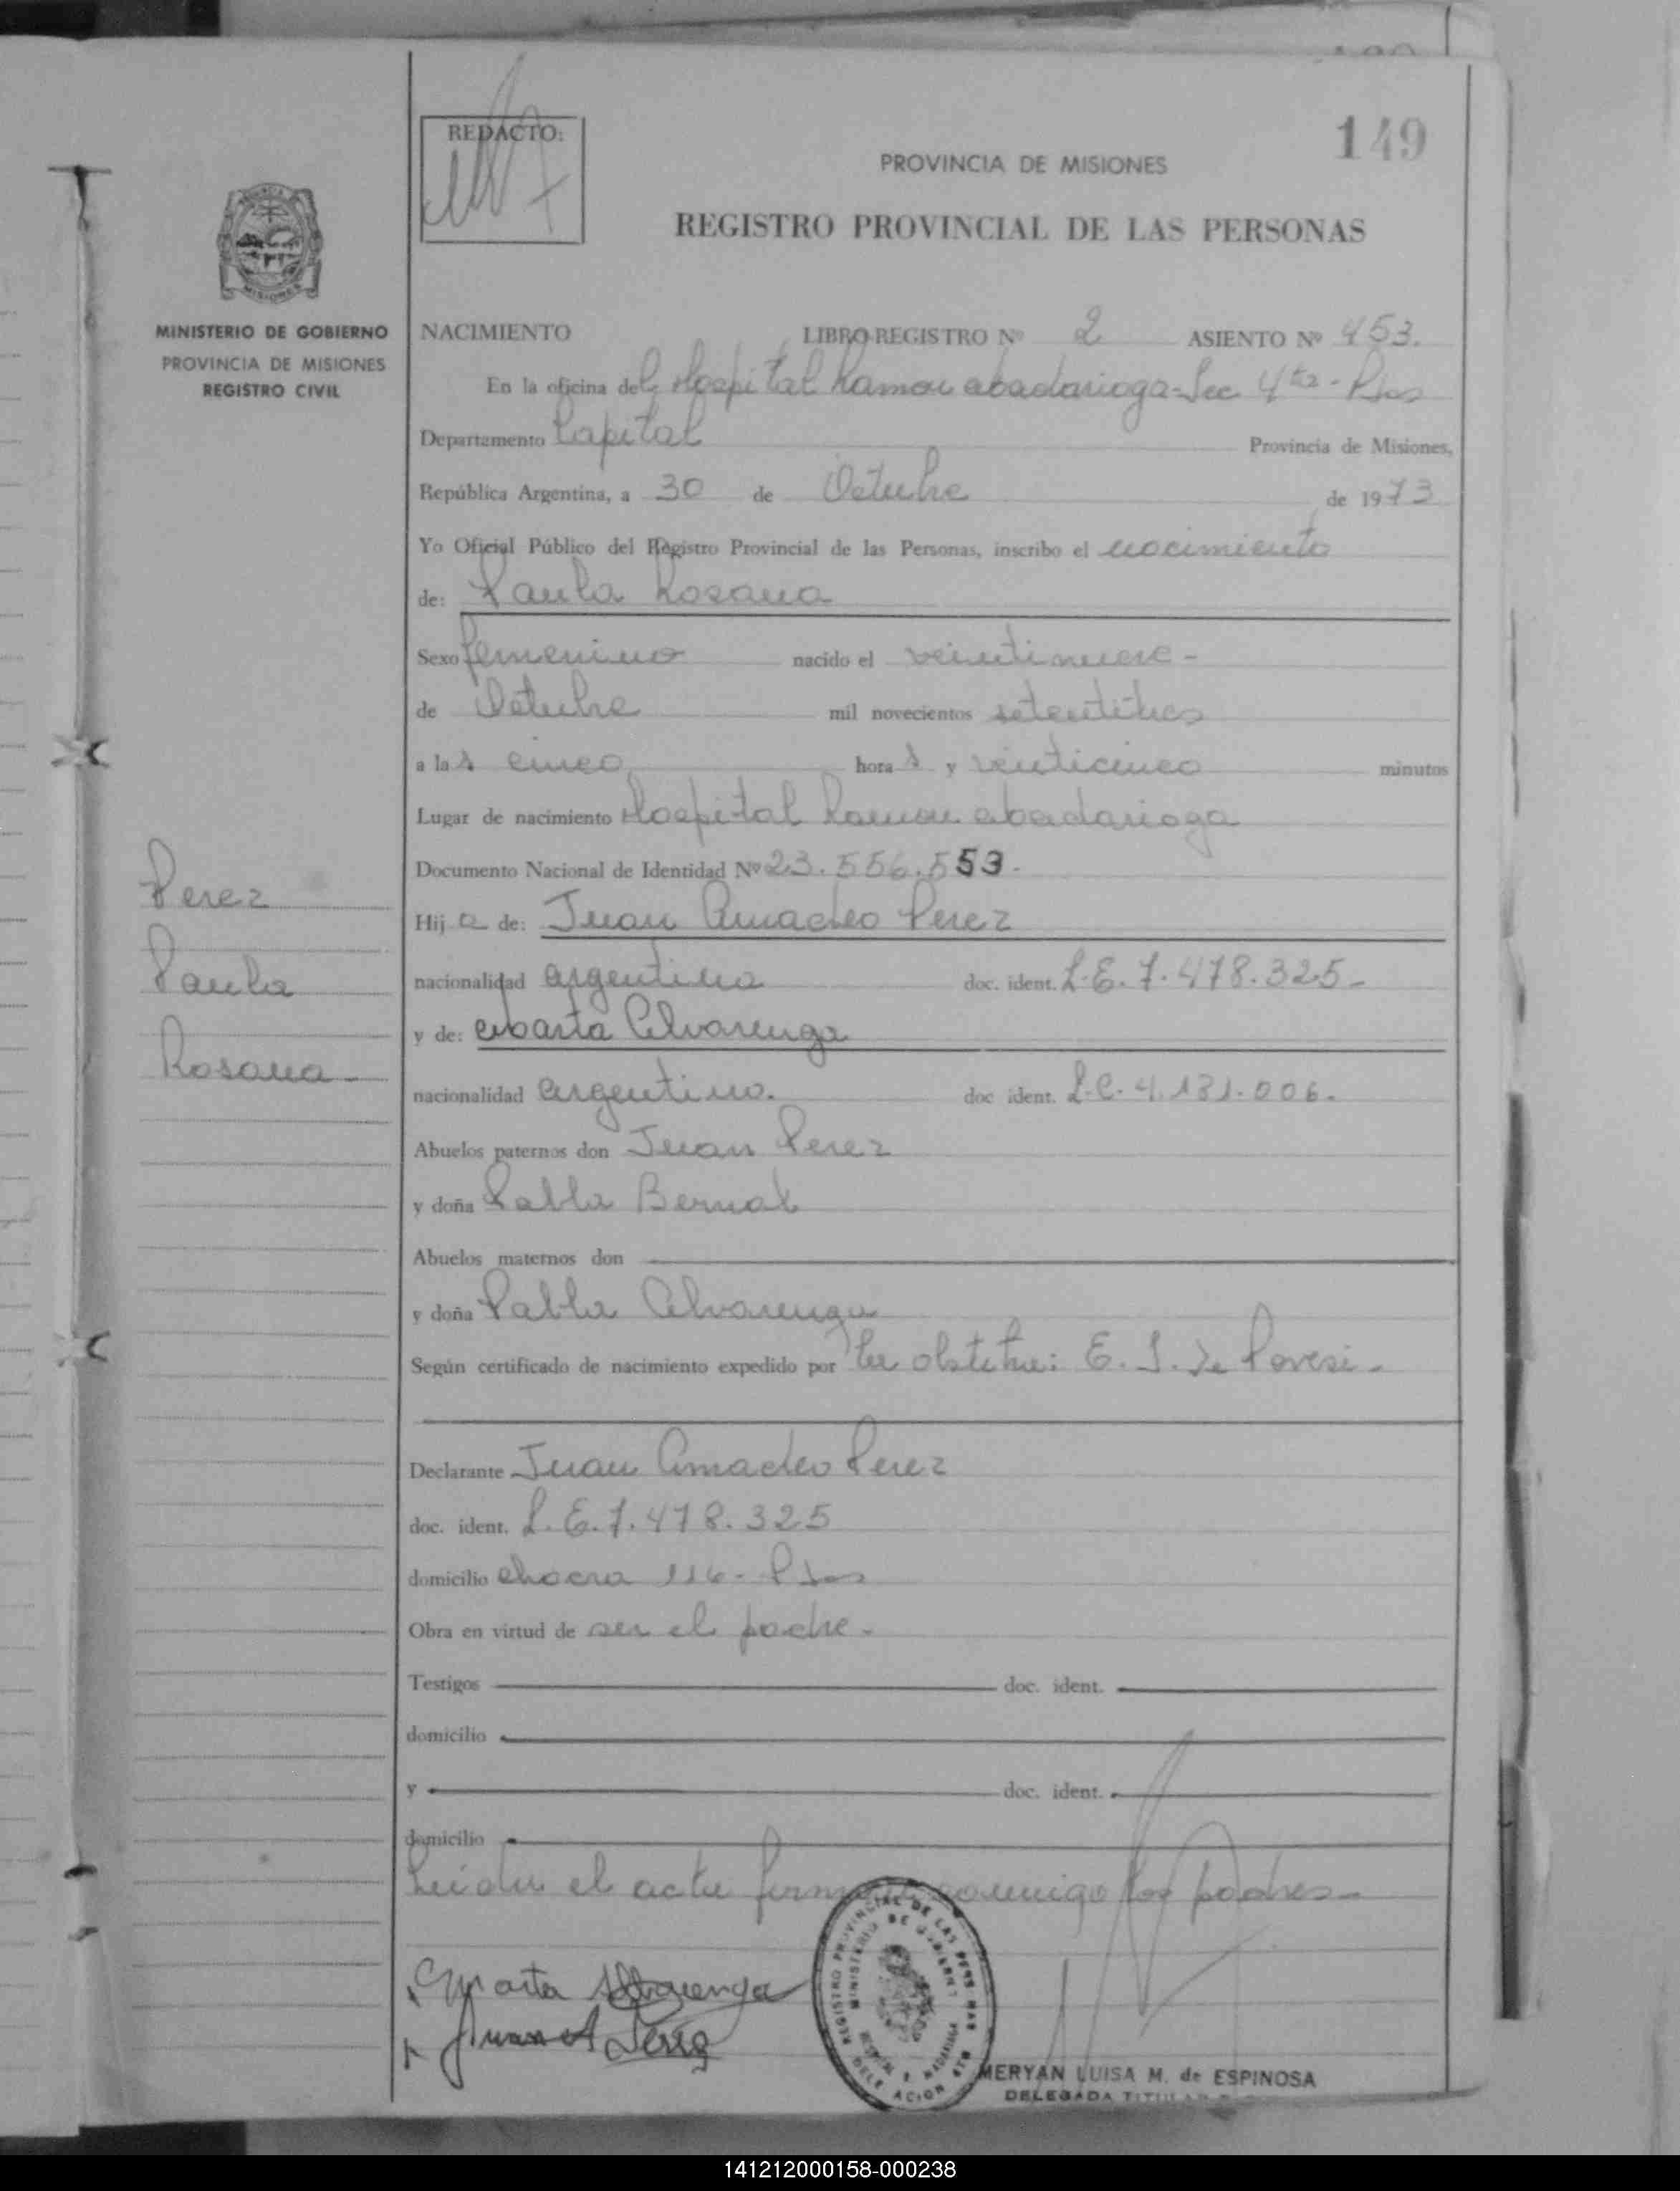 149
REDACTO:
PROVINCIA DE MISIONES
REGISTRO PROVINCIAL DE LAS PERSONAS
MISIONES
MINISTERIO DE GOBIERNO
PROVINCIA DE MISIONES
REGISTRO CIVIL
NACIMIENTO LIBRO REGISTRO Nº 2 ASIENTO Nº 453.
En la oficina del Hospital Ramon Madariaga - Sec 4ta - Pdas
Departamento Capital Provincia de Misiones,
República Argentina, a 30 de Octubre de 1973
Yo Oficial Público del Registro Provincial de las Personas, inscribo el nacimiento
de: Paula Rosana
Sexo femenino nacido el veintinueve -
de Octubre mil novecientos setentitres
a las cinco horas y veinticinco minutos
Lugar de nacimiento Hospital Ramon Madariaga
Documento Nacional de Identidad Nº 23.556.553.
Perez
Paula
Rosana -
Hija de: Juan Amadeo Perez
nacionalidad argentina doc. ident. L.E. 7.478.325 -
y de: Marta Alvarenga
nacionalidad argentina. doc ident. L.C. 4.131.006.
Abuelos paternos don Juan Perez
y doña Pabla Bernal
Abuelos maternos don
y doña Pabla Alvarenga
Según certificado de nacimiento expedido por la obstetra: E. S. de Povesi -
Declarante Juan Amadeo Perez
doc. ident. L.E. 7.478.325
domicilio chacra 116 - Pdas
Obra en virtud de ser el padre -
Testigos doc. ident.
domicilio
y doc. ident.
domicilio
Leida el acta firman conmigo los padres -
Marta Alvarenga
Juan A Perez
REGISTRO PROVINCIAL DE LAS PERSONAS
MINISTERIO DE GOBIERNO
MERYAN LUISA M. de ESPINOSA
DELEGADA TITULAR
141212000158-000238